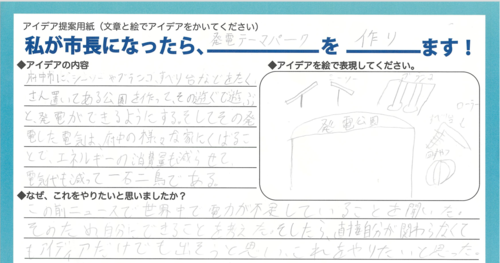 アイデア提案用紙（文章と絵でアイデアをかいてください）
私が市長になったら、発電テーマパークを作ります！
◆アイデアの内容
府中市に、シーソーやブランコ、すべり台などをたく
さん置いてある公園を作って、その遊具で遊ぶ
と、発電ができるようにする。そしてその発
電した電気は、府中の様々な家にくばるこ
とで、エネルギーの消費量も減らせて
電気代も減って一石二鳥である。
◆アイデアを絵で表現してください。
シーソー
発電公園
◆なぜ、これをやりたいと思いましたか？
この前ニュースで世界中で電力が不足していることを聞いた。
そのため自分にできることを考えた。そしたら、自分が関わらなくて
もアイデアだけでも出そうと思い、これをやりたいと思った。